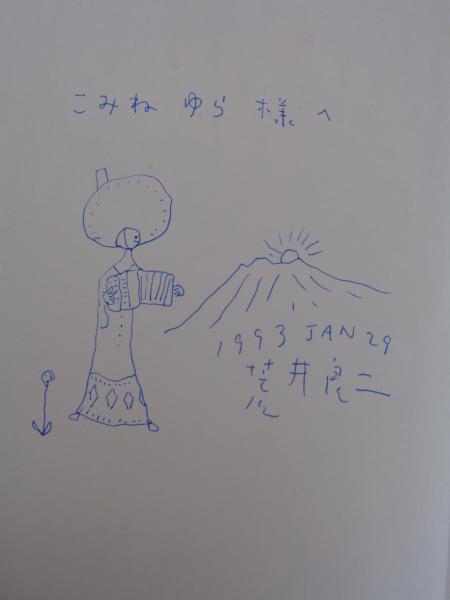 こみね ゆら 様へ
1993 JAN 29
荒井良二